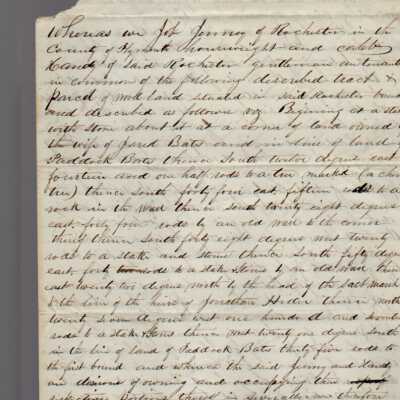 Whereas we Job Jenney of Rochester in the
County of Plymouth housewright and Caleb
Handy of Said Rochester gentleman are tenants
in common of the following described tract &
parcel of wood land situated in Said Rochester
and described as follows viz Begining at a stake
with stone about it at a corner of land owned
the wife of Jared Bats and in line of land
Paddock Bats thence South twelve degrees east
fourteen and one half rods to a tree marked (a
tree) thence South forty four east fifteen rods to a
rock in the wall thence south twenty eight degrees
east forty four rods by an old wall to the corner
thence South forty eight degrees west twenty
rods to a stake and stone thence South fifty degrees
east forty rods to a stake & stones by an old wall thence
east twenty two degrees north by the head of the Salt marsh
to the line of the heirs of Jonathan thence north
twenty degrees west one hundred and
rods to a stake & stones thence west twenty one degrees South
in the line of land of Paddock Bats thirty five rods to
the first bound and whereas the said Jenney and Handy
are desirous of owning and occupying their
portions thereof in severalty now therefore